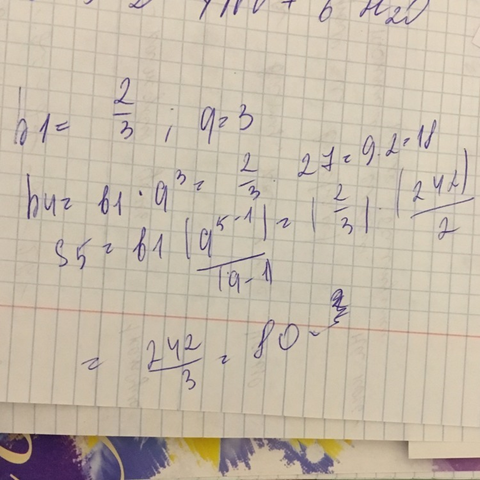 + 6 H2O
b1 = 2/3 ; q = 3
b4 = b1 · q³ = 2/3 · 27 = 9 · 2 = 18
S5 = b1 (q^5-1)/(q-1) = (2/3) · (242)/2
= 242/3 = 80